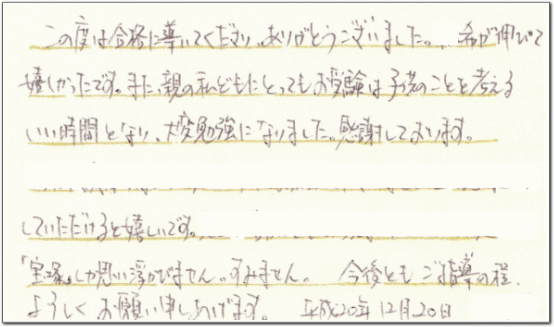 この度は合格に導いてくださり、ありがとうございました。 希が伸びて
嬉しかったです。また、親の私どもにとってもお受験は子供のことを考える
いい時間となり、大変勉強になりました。感謝しております。
していただけると嬉しいです。
「宝塚」しか思い浮かびません。すみません。 今後ともご指導の程、
よろしくお願い申しあげます。 平成20年12月20日